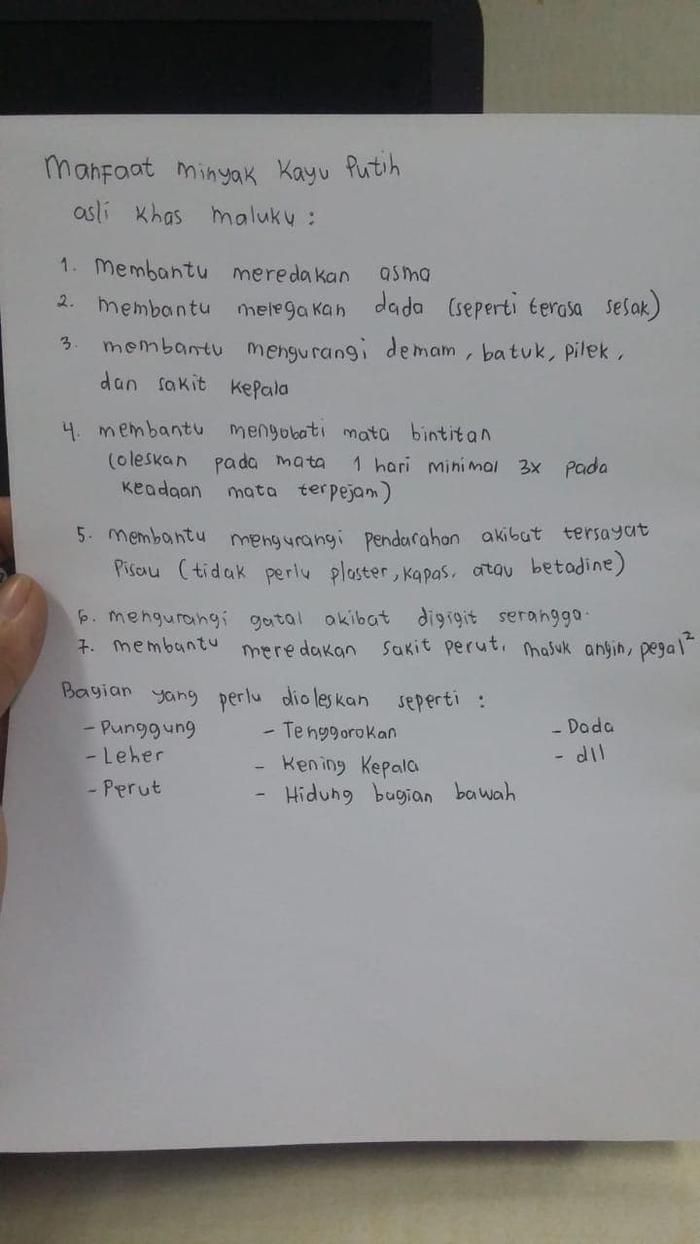 Manfaat Minyak Kayu Putih
asli khas maluku :
1. Membantu meredakan asma
2. membantu melegakan dada (seperti terasa sesak)
3. membantu mengurangi demam, batuk, pilek,
dan sakit kepala
4. membantu mengobati mata bintitan
(oleskan pada mata 1 hari minimal 3x pada
keadaan mata terpejam)
5. membantu mengurangi pendarahan akibat tersayat
Pisau (tidak perlu plaster, kapas, atau betadine)
6. mengurangi gatal akibat digigit serangga.
7. membantu meredakan sakit perut, masuk angin, pegal²
Bagian yang perlu dioleskan seperti :
- Punggung - Tenggorokan - Dada
- Leher - Kening Kepala - dll
- Perut - Hidung bagian bawah